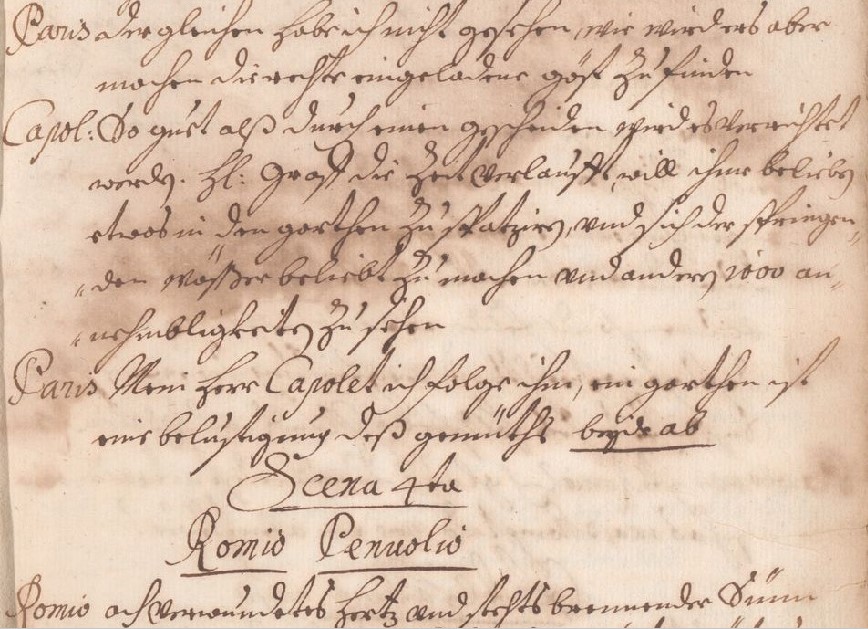 Paris dergleichen habe ich nicht gesehen, wie wird ers aber
machen die rechte eingeladene gäst zu finden
Capol: So guet alß durch einen gescheiden wird es verrichtet
werden. Hl: Graff die Zeit verlaufft, will ihme belieben
etwas in den garthen zu spatziren, und sich der springen-
den wässer beliebt zu machen und anderen 1000 an-
nehmbligkeiten zu sehen
Paris Mein Herr Capolet ich folge ihm, ein garthen ist
eine belustigung deß gemüths beyde ab
Scena 4ta
Romio Penuolio
Romio ach verwundetes hertz und stehts brennender Sünn